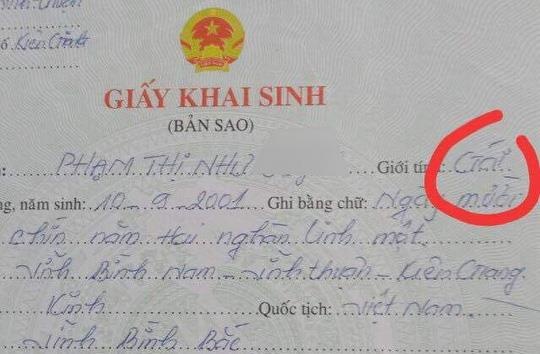 Kiên Giang
GIẤY KHAI SINH
(BẢN SAO)
PHẠM THỊ NHƯ Giới tính: Gái
ng, năm sinh: 10-9-2001 Ghi bằng chữ: Ngày mười
chín năm Hai nghìn linh một
Vĩnh Bình Nam - Vĩnh Thuận - Kiên Giang
Kinh Quốc tịch: Việt Nam
Vĩnh Bình Bắc